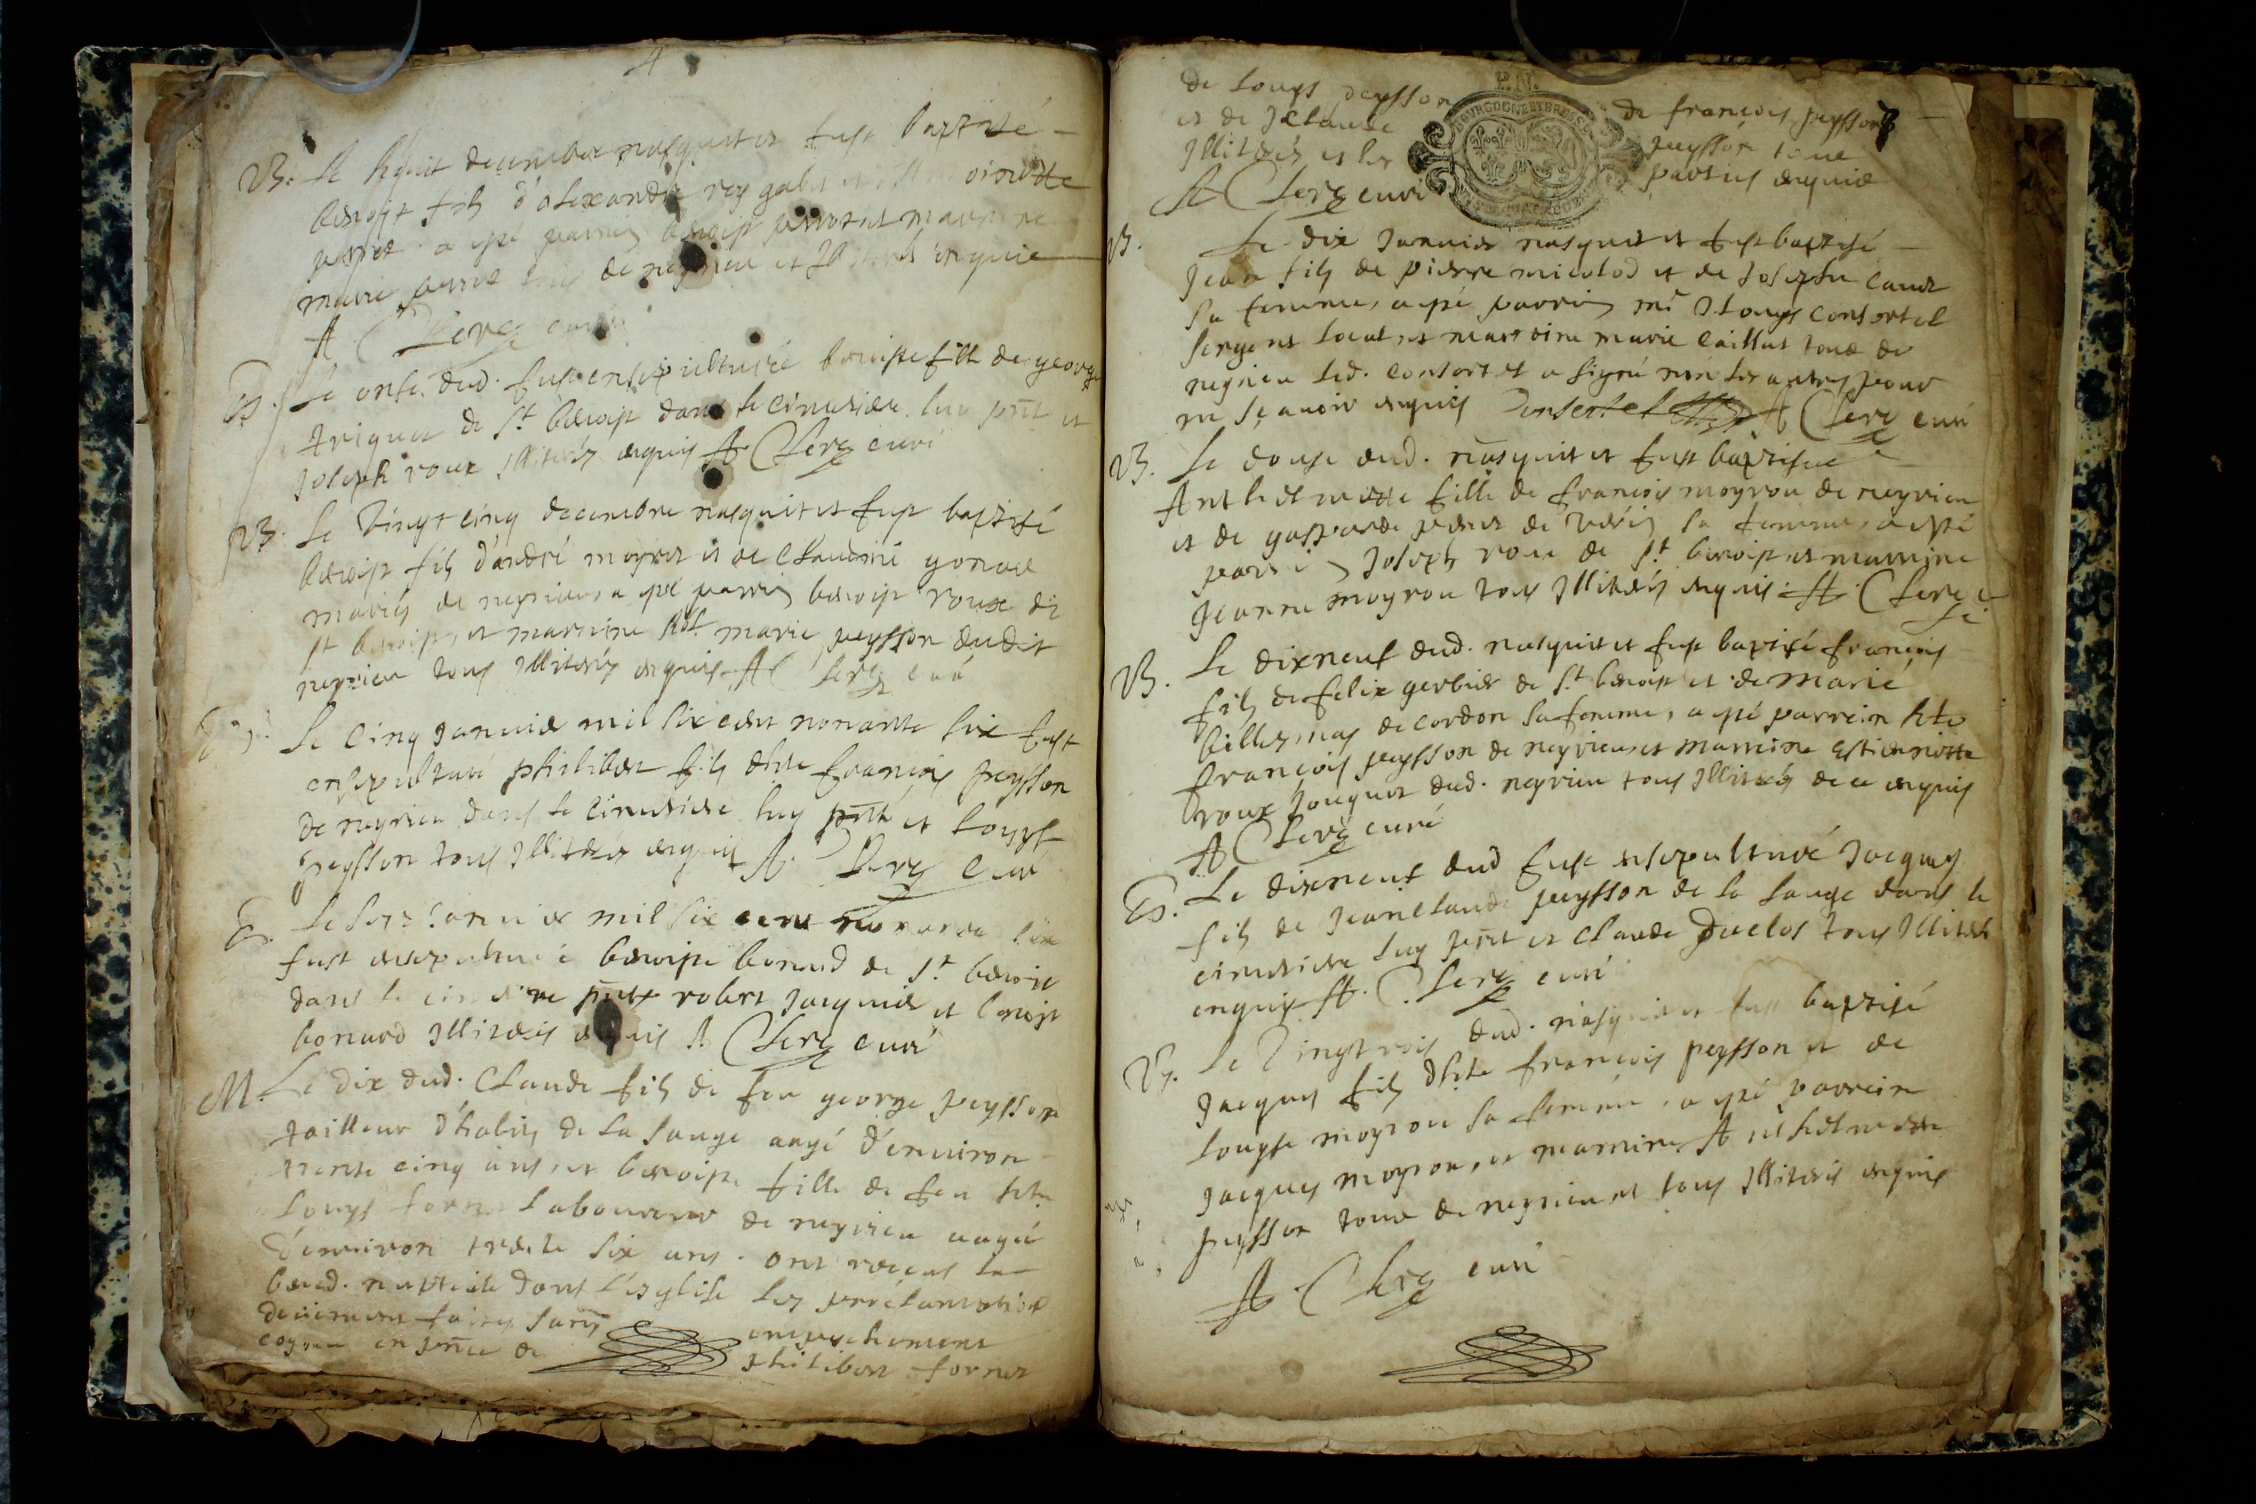 B. Le huit decembre nasquit et fust baptisé
benoist fils d'alexandre roy galet et
perret a esté parrin benoist perrot et marrine
marie perret tous de neyrieu et Illiterés enquis
A Clerc curé
E. Le onse dud. fust ensepulturée benoiste fille de george
triquet de st benoist dans le cimetiere luy pnt et
Joseph roux Illiterés enquis A Clerc curé
B. Le vingt cinq decembre nasquit et fust baptisé
benoist fils d'andré moyret et de Claudine gonard
mariés de neyrieu, a esté parrin benoist roux de
st benoist, et marrine hte marie peysson dudit
neyrieu tous Illiterés enquis A Clerc curé
E. Le cinq Januier mil six cent nonante six fust
ensepulturé philibert fils dhte françois peysson
de neyrieu dans le cimetiere luy pnt et Louys
peysson tous Illiterés enquis A Clerc curé
E. Le sept Januier mil six cent nonante six
fust ensepulturée benoiste bonard de st benoit
dans le cimetiere pntz robert Jacquier et benoist
bonard Illiterés enquis A Clerc curé
M. Le dix dud. Claude fils de feu george peysson
tailleur d'habits de la sauge aagé d'enuiron
trente cinq ans, et benoiste fille de feu hte
Louys fornet laboureur de neyrieu aagée
d'enuiron trente six ans. ont receus la
bened. nuptiale dans l'esglise les proclamations
deüement faites sans empeschement
cogneu en pnce de philibert fornet
de Louys peysson de françois peysson
et de Jclaude peysson tous
Illiterés et les parties enquis
A Clerc curé
7
BOURGOGNE ET BRESSE
B. Le dix Januier nasquit et fust baptisé
Jean fils de pierre micolod et de Josepte
sa femme, a esté parrin me Louys consortel
sergent local, et marreine marie caillat tous de
neyrieu led. consortel a signé non les autres pour
ne sçauoir enquis Consortel A Clerc curé
B. Le douse dud. nasquit et fust baptisée
Anthelmette fille de françois moyrou de neyrieu
et de gasparde perret de sa femme, a esté
parrin Joseph roux de st benoist et marrine
Jeanne moyrou tous Illiterés enquis A Clerc c
B. Le dixneuf dud. nasquit et fust baptisé françois
fils de felix gerbier de st benoist et de marie
billiemas de cordon sa femme, a esté parrein hte
françois peysson de neyrieu, et marreine Estiennette
roux Jouquet dud. neyrieu tous Illiterés de ce enquis
A Clerc curé
E. Le dixneuf dud fust ensepulturé Jacques
fils de Jeanclaude peysson de la sauge dans le
cimetiere luy pnt et claude Duclos tous Illiterés
enquis A. Clerc curé
B. Le vingtrois dud. nasquit et fust baptisé
Jacques fils dhte françois peysson et de
Louyse moyrou sa femme, a esté parrein
Jacques moyrou, et marrine Anthelmette
peysson tous de neyrieu et tous Illiterés enquis
A Clerc curé